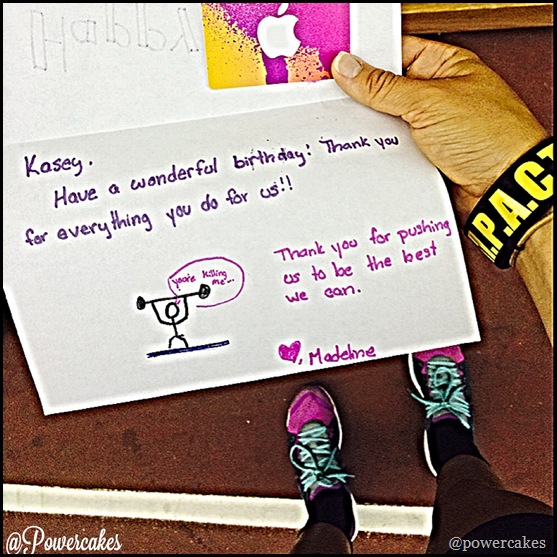 Happy
Kasey.
Have a wonderful birthday! Thank you
for everything you do for us!!
you're killing
me...
Thank you for pushing
us to be the best
we can.
Madeline
I.M.P.A.C.T
@Powercakes
@powercakes